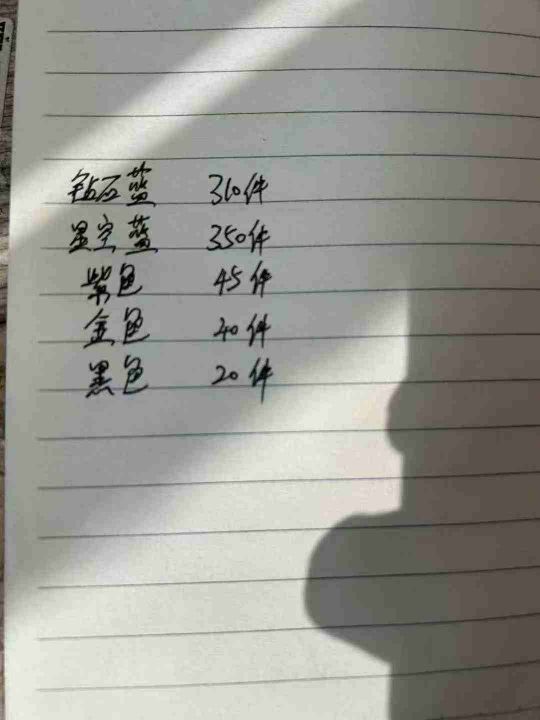 钻石蓝 310件
星空蓝 350件
紫色 45件
金色 40件
黑色 20件